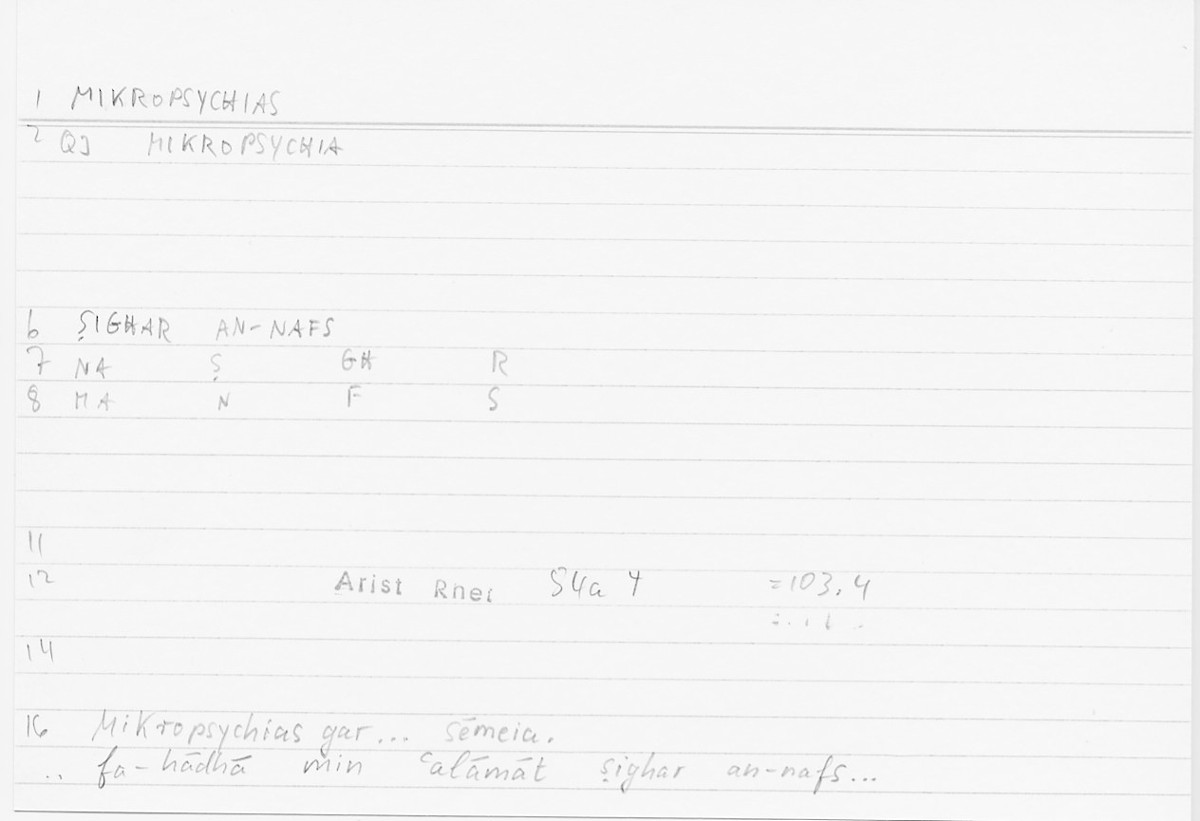 1 MIKROPSYCHIAS
2 QJ MIKROPSYCHIA
6 ṢIGHAR AN-NAFS
7 NA Ṣ GH R
8 MA N F S
11
12 Arist Rhet 84a 4 =103,4
14
16 Mikropsychias gar... sēmeia.
.. fa-hādhā min ʿalāmāt ṣighar an-nafs...